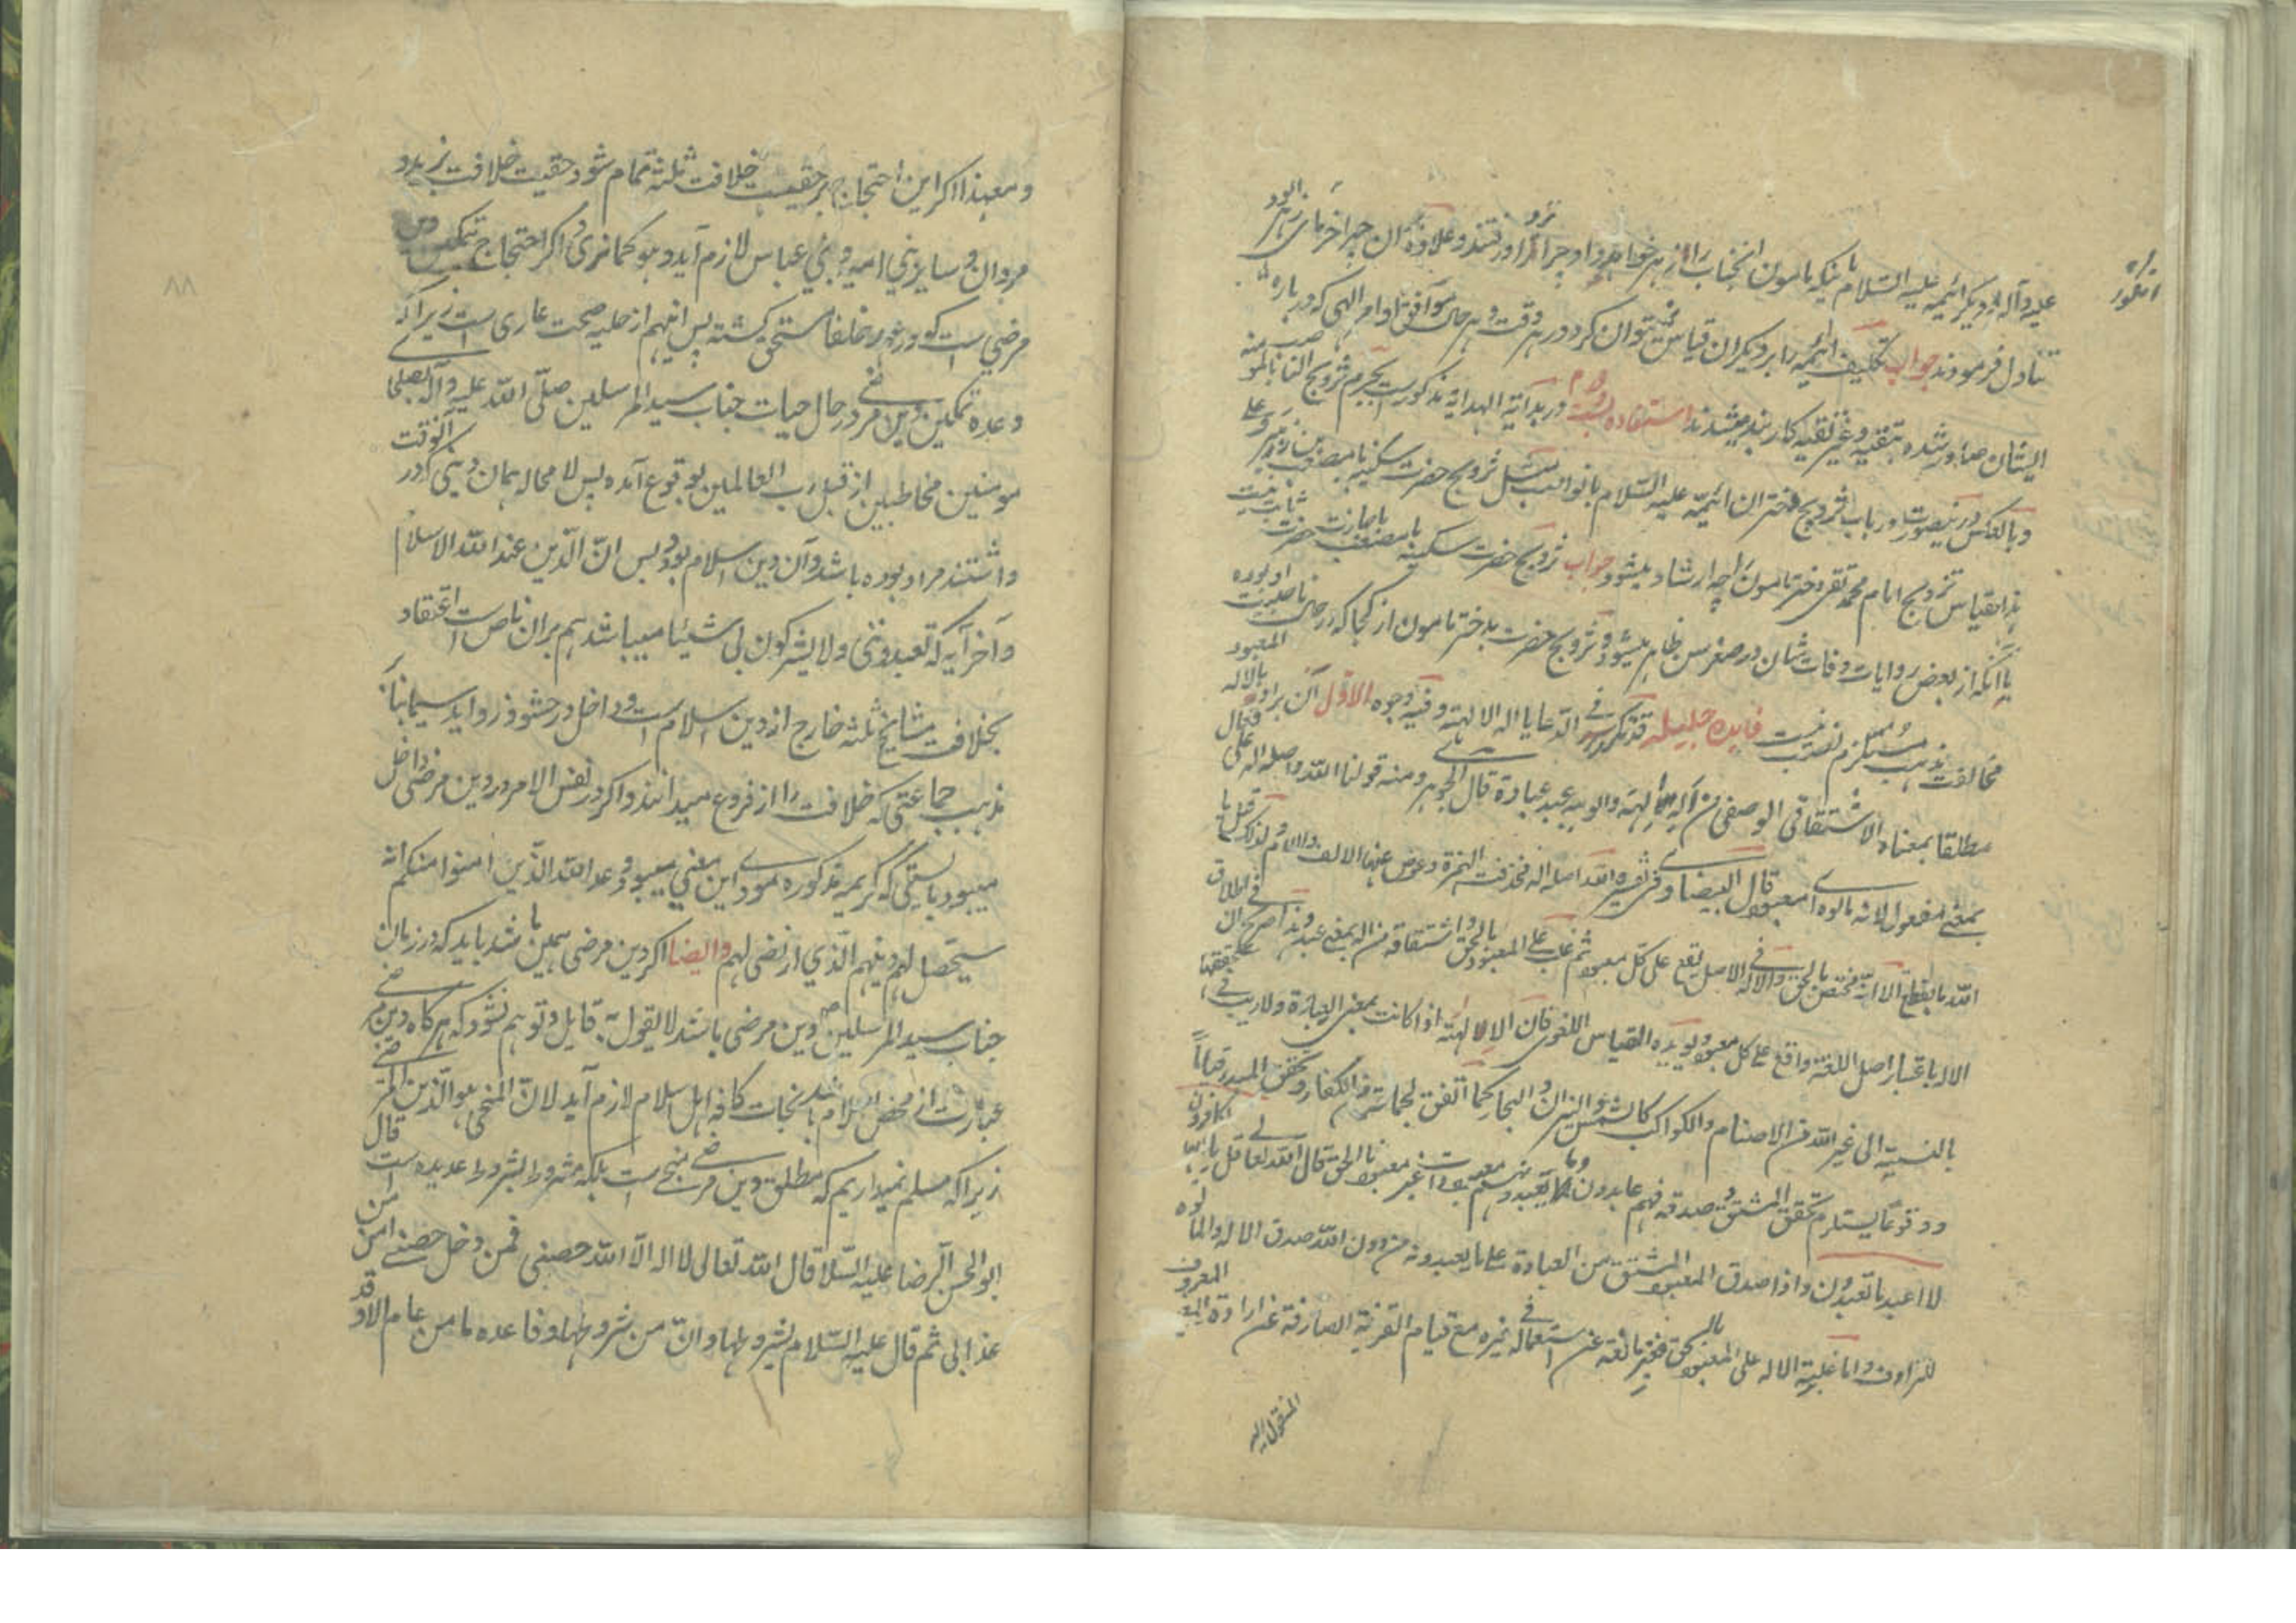 علیه و آله و دیگر ائمه علیه السلام با اینکه مامون انجناب را از زهر خواهد داد چرا نزد او رفتند و علاوه آن چرا خرمای زهر الود
تناول فرمودند جواب تکلیف ائمه را بر دیگران قیاس نمی توان کرد در هر وقت و هر حال موافق اوامر الهی که درباره
ایشان صادر شده بتقیه و غیر تقیه کاربند میشدند استفاده بست و دوم در بدایة الهدایه مذکورست یحرم تزویج الناصب مؤمنه
و بالعکس درینصورت در باب تزویج دختران ائمه علیه السلام با نواصب مثل تزویج حضرت سکینه با مصعب بن زبیر و علی
هذا القیاس تزویج امام محمد تقی دختر مامون را چه ارشاد میشود جواب تزویج حضرت سکینه با مصعب باجازت حضرت ثابت نیست
با آنکه از بعض روایات وفات شان در صغر سن ظاهر میشود و تزویج حضرت بدختر مامون از کجا که در حال ناصبیت او بوده
مخالفت مذهب مستلزم نصب نیست فایده جلیله قد تکرر فی الدعا یا اله الالهة و فیه وجوه الاول ان یراد بالاله المعبود
مطلقا بمعناه الاشتقاقی الوصفی من اله الاهة والوهیه عبد عبادة قال الجوهری و منه قولنا الله و اصله اله علی فعال
بمعنی مفعول لانه مالوه ای معبود قال البیضاوی فی تفسیره الله اصله اله فحذفت الهمزة و عوض عنها الالف واللام و لذلک قیل یا
الله بالقطع الا انه مختص بالمعبود بالحق والاله فی الاصل یقع علی کل معبود ثم غلب علی المعبود بالحق و اشتقاقه من اله بمعنی عبد و هذا صریح فی ان اطلاق
الاله باعتبار اصل اللغة واقع علی کل معبود و یؤیده القیاس اللغوی فان الالهة اذا کانت بمعنی العبادة ولاریب فی تحققها
بالنسبة الی غیر الله من الاصنام والکواکب کالشمس والنیران و البحار کما اتفق لجماعة من الکفار و تحقق المبدء قیاماً
و وقوعاً یستلزم تحقق المشتق و صدقه فهم عابدون و ما یعبدونهم معبودات غیر معبود بالحق قال الله تعالی قل یا ایها الکافرون
لا اعبد ما تعبدون و اذا صدق المعبود المشتق من العبادة علی ما یعبدونه من دون الله صدق الاله والمالوه
للترادف و اما غلبة الاله علی المعبود بالحق فغیر مانعة عن استعماله فی غیره مع قیام القرینة الصارفة عن ارادة المعنی المعروف
المنقول الیه
و معهذا اگر این احتجاج بر حقیت خلافت ثلثه تمام شود حقیت خلافت یزید و
مروان و سایر بنی امیه و بنی عباس لازم آید و هو کما تری و اگر احتجاج تمکین دین
مرضی است که در عهد خلفا متحقق گشته پس انهم از حلیه صحت عاری است زیرا که
وعده تمکین دین مرضی در حال حیات جناب سید المرسلین صلی الله علیه و آله بصلحا
مومنین مخاطبین از قبل رب العالمین بوقوع آمده پس لا محاله همان دینی که در آنوقت
داشتند مراد بوده باشد و آن دین اسلام بود و بس ان الدین عند الله الاسلام
و آخر آیه که تعبدوننی ولا یشرکون بی شیئا میباشد هم بران ناص است اعتقاد
بخلافت مشایخ ثلثه خارج از دین اسلام است و داخل در حشو و زواید سیما بنا بر
مذهب جماعتی که خلافت را از فروع میدانند و اگر در نفس الامر در دین مرضی داخل
میبود بایستی که کریمه مذکوره مودای این معنی میبود وعد الله الذین امنوا منکم انه
سیحصل لهم دینهم الذی ارتضی لهم وایضا اگر دین مرضی همین باشد باید که در زمان
جناب سید المرسلین ص دین مرضی نباشد لا یقول به قایل و توهم نشود که هرگاه دین مرضی
عبارت از محض اسلام باشد نجات کافه اهل اسلام لازم آید لان المنجی هو الدین المرتضی
زیرا که مسلم نمیداریم که مطلق دین مرضی منجی است بلکه مشروط بشروط عدیده است قال
ابو الحسن الرضا علیه السلام قال الله تعالی لا اله الا الله حصنی فمن دخل حصنی امن من
عذابی ثم قال علیه السلام بشروطها و ان من شروطها و قاعده ما من عام الا و قد